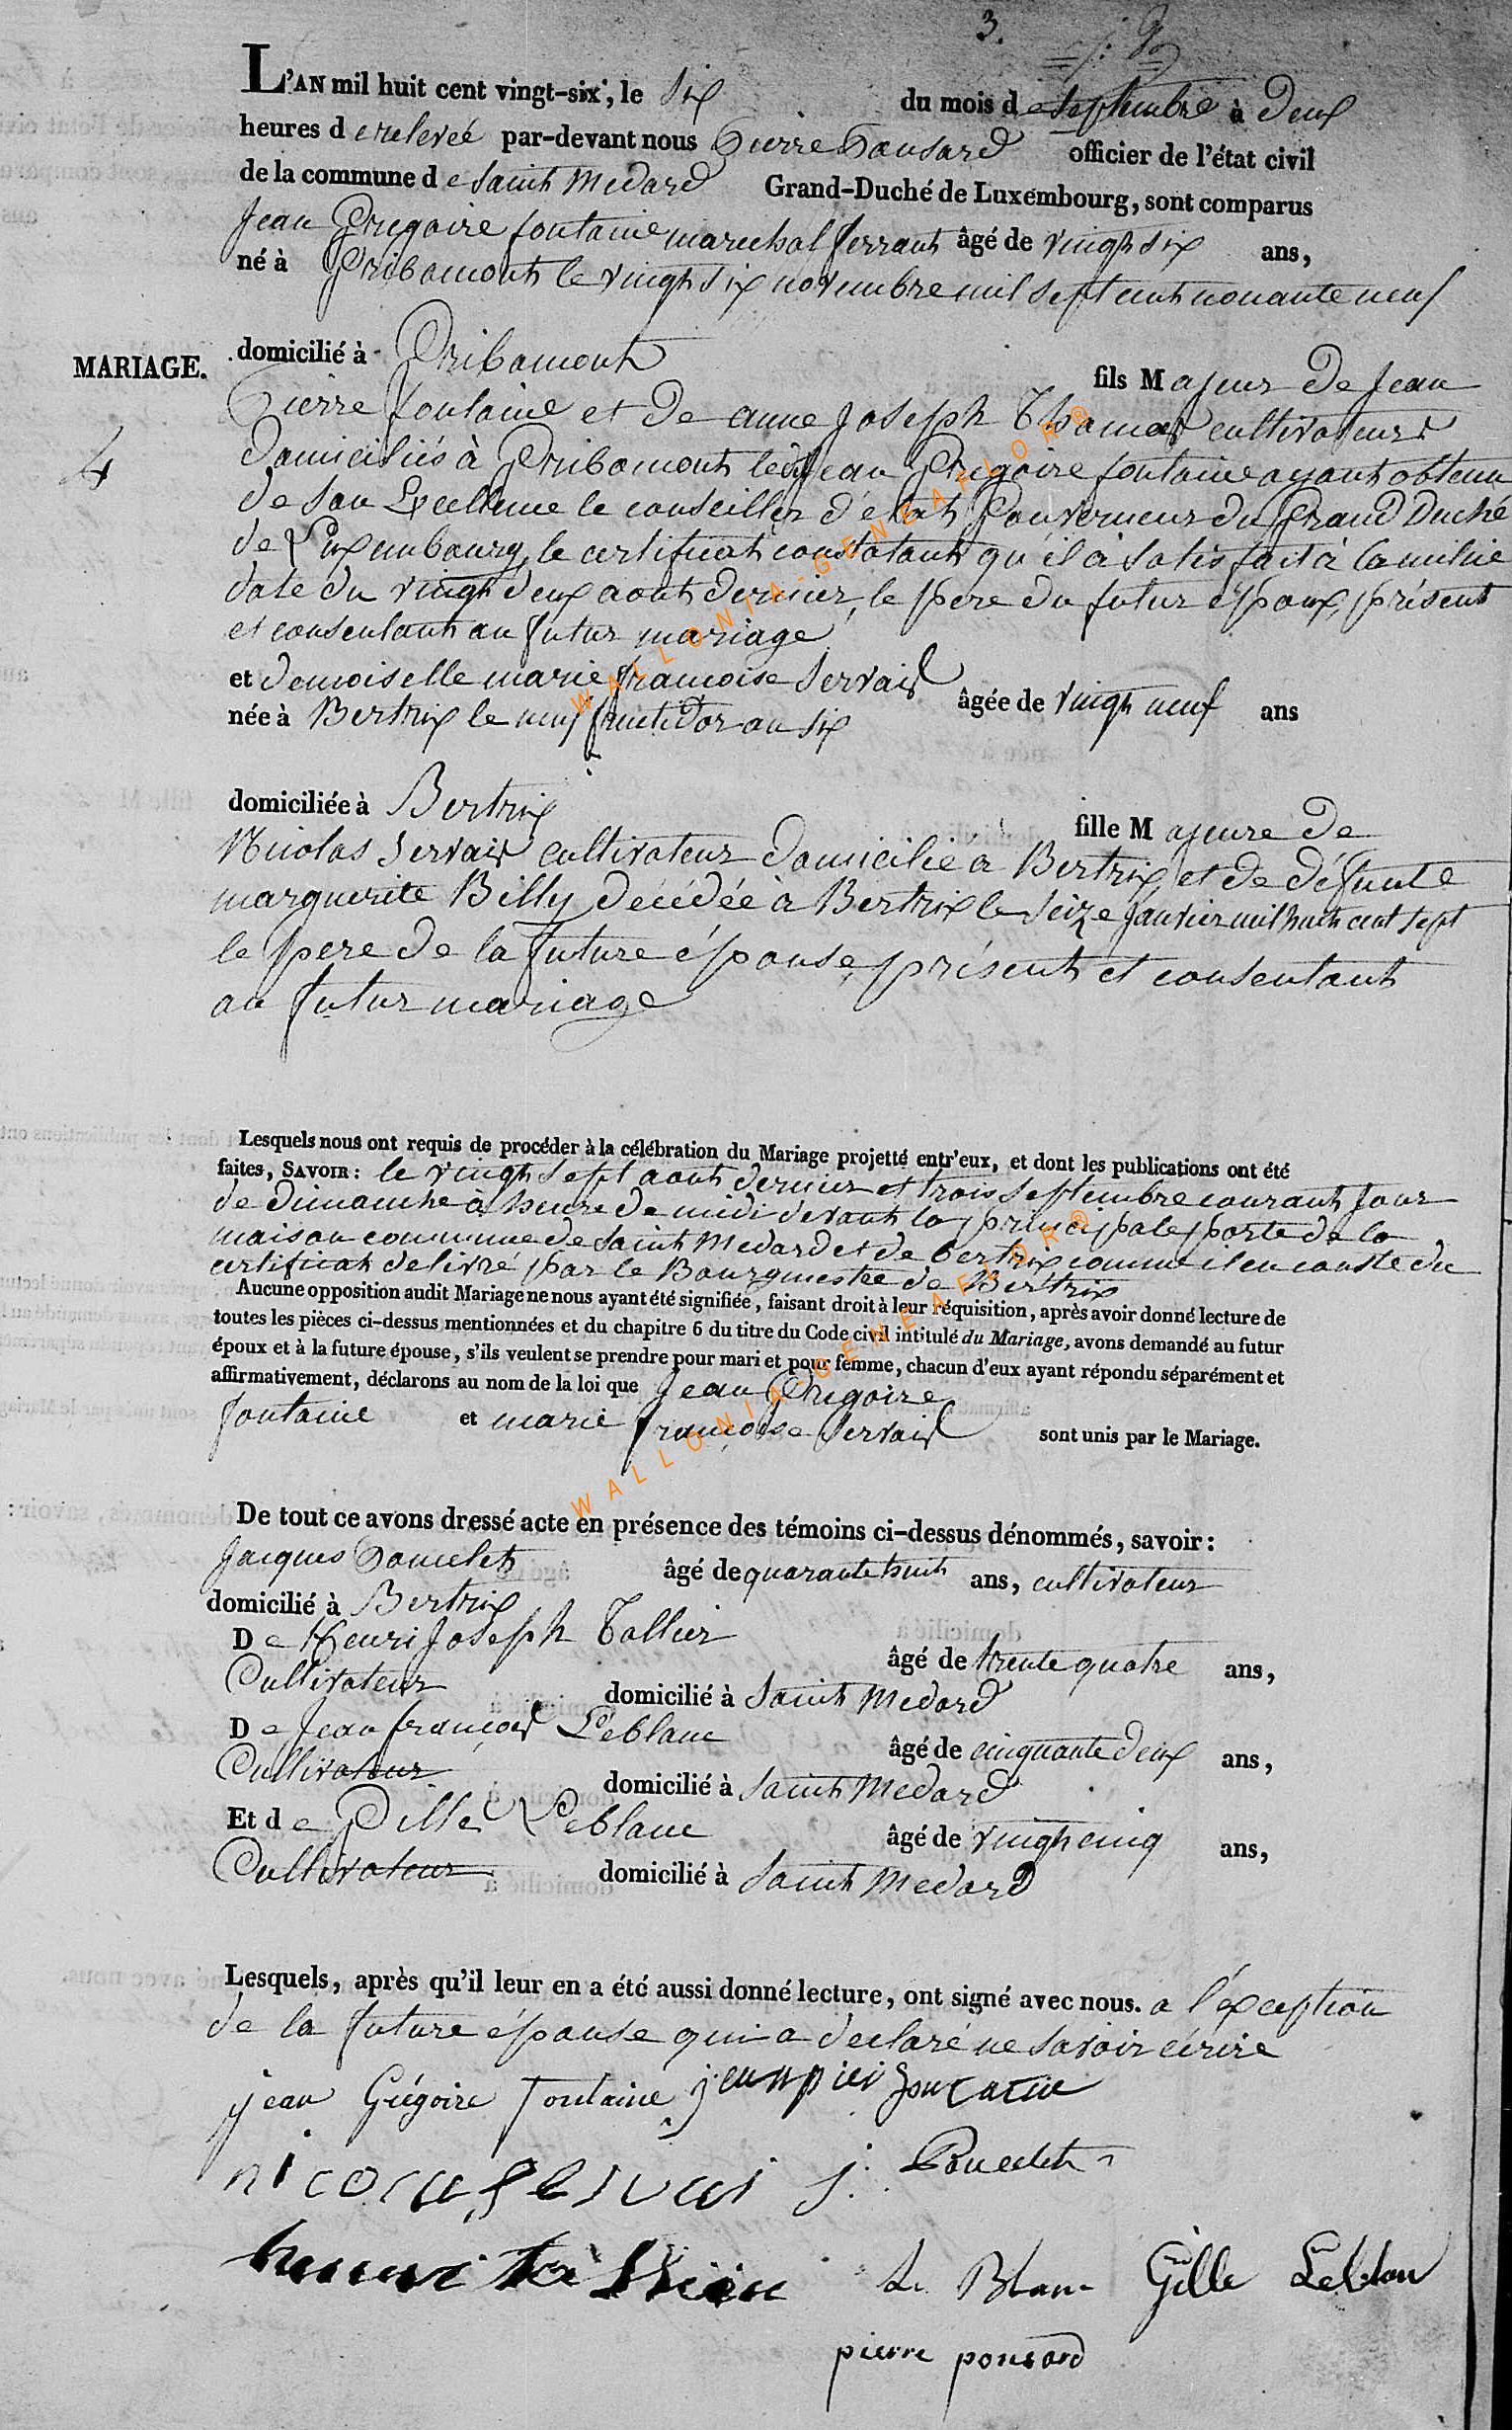 3.
L'AN mil huit cent vingt-six, le six du mois de septembre à deux
heures de relevée par-devant nous Pierre Ponsard officier de l'état civil
de la commune de Saint Medard Grand-Duché de Luxembourg, sont comparus
Jean Gregoire fontaine marechal ferrant âgé de vingt six ans,
né à Gribomont le vingt six novembre mil sept cent nonante neuf
MARIAGE.
domicilié à Gribomont fils Majeur de Jean
Pierre fontaine et de anne Joseph Thomas cultivateurs
4
domiciliés à Gribomont ledit Jean Gregoire fontaine ayant obtenu
de son Excellence le conseiller d'état Gouverneur du Grand Duché
de Luxembourg, le certificat constatant qu'il à satisfait à la milice
date du vingt deux aout dernier, le pere du futur époux, présent
et consentant au futur mariage
et demoiselle marie françoise Servais âgée de vingt neuf ans
née à Bertrix le neuf fructidor an six
domiciliée à Bertrix fille Majeure de
Nicolas Servais cultivateur domicilié à Bertrix, et de défunte
marguerite Billy décédée à Bertrix le seize janvier mil huit cent sept
le pere de la future épouse, présent et consentant
au futur mariage
Lesquels nous ont requis de procéder à la célébration du Mariage projetté entr'eux, et dont les publications ont été
faites, SAVOIR : le vingt sept aout dernier et trois septembre courant jour
de dimanche à heure de midi devant la principale porte de la
maison commune de Saint Medard et de bertrix comme il en conste du
certificat delivré par le Bourgmestre de Bertrix
Aucune opposition audit Mariage ne nous ayant été signifiée, faisant droit à leur réquisition, après avoir donné lecture de
toutes les pièces ci-dessus mentionnées et du chapitre 6 du titre du Code civil intitulé du Mariage, avons demandé au futur
époux et à la future épouse, s'ils veulent se prendre pour mari et pour femme, chacun d'eux ayant répondu séparément et
affirmativement, déclarons au nom de la loi que Jean Gregoire
fontaine et marie françoise Servais sont unis par le Mariage.
De tout ce avons dressé acte en présence des témoins ci-dessus dénommés, savoir :
Jacques Poncelet âgé de quarante huit ans, cultivateur
domicilié à Bertrix
De Henri Joseph Tallier âgé de trente quatre ans,
Cultivateur domicilié à Saint Medard
De Jean françois Leblanc âgé de cinquante deux ans,
Cultivateur domicilié à Saint Medard
Et de Gille Leblanc âgé de vingt cinq ans,
Cultivateur domicilié à Saint Medard
Lesquels, après qu'il leur en a été aussi donné lecture, ont signé avec nous. a l'exception
de la future épouse qui a declaré ne savoir écrire
jean Grégoire fontaine jean pier fontaine
nicolas servai j. Poncelet
henri Le Blanc Gille Leblan
pierre ponsard
WALLONIA-GENEAFLOR®
WALLONIA-GENEAFLOR®